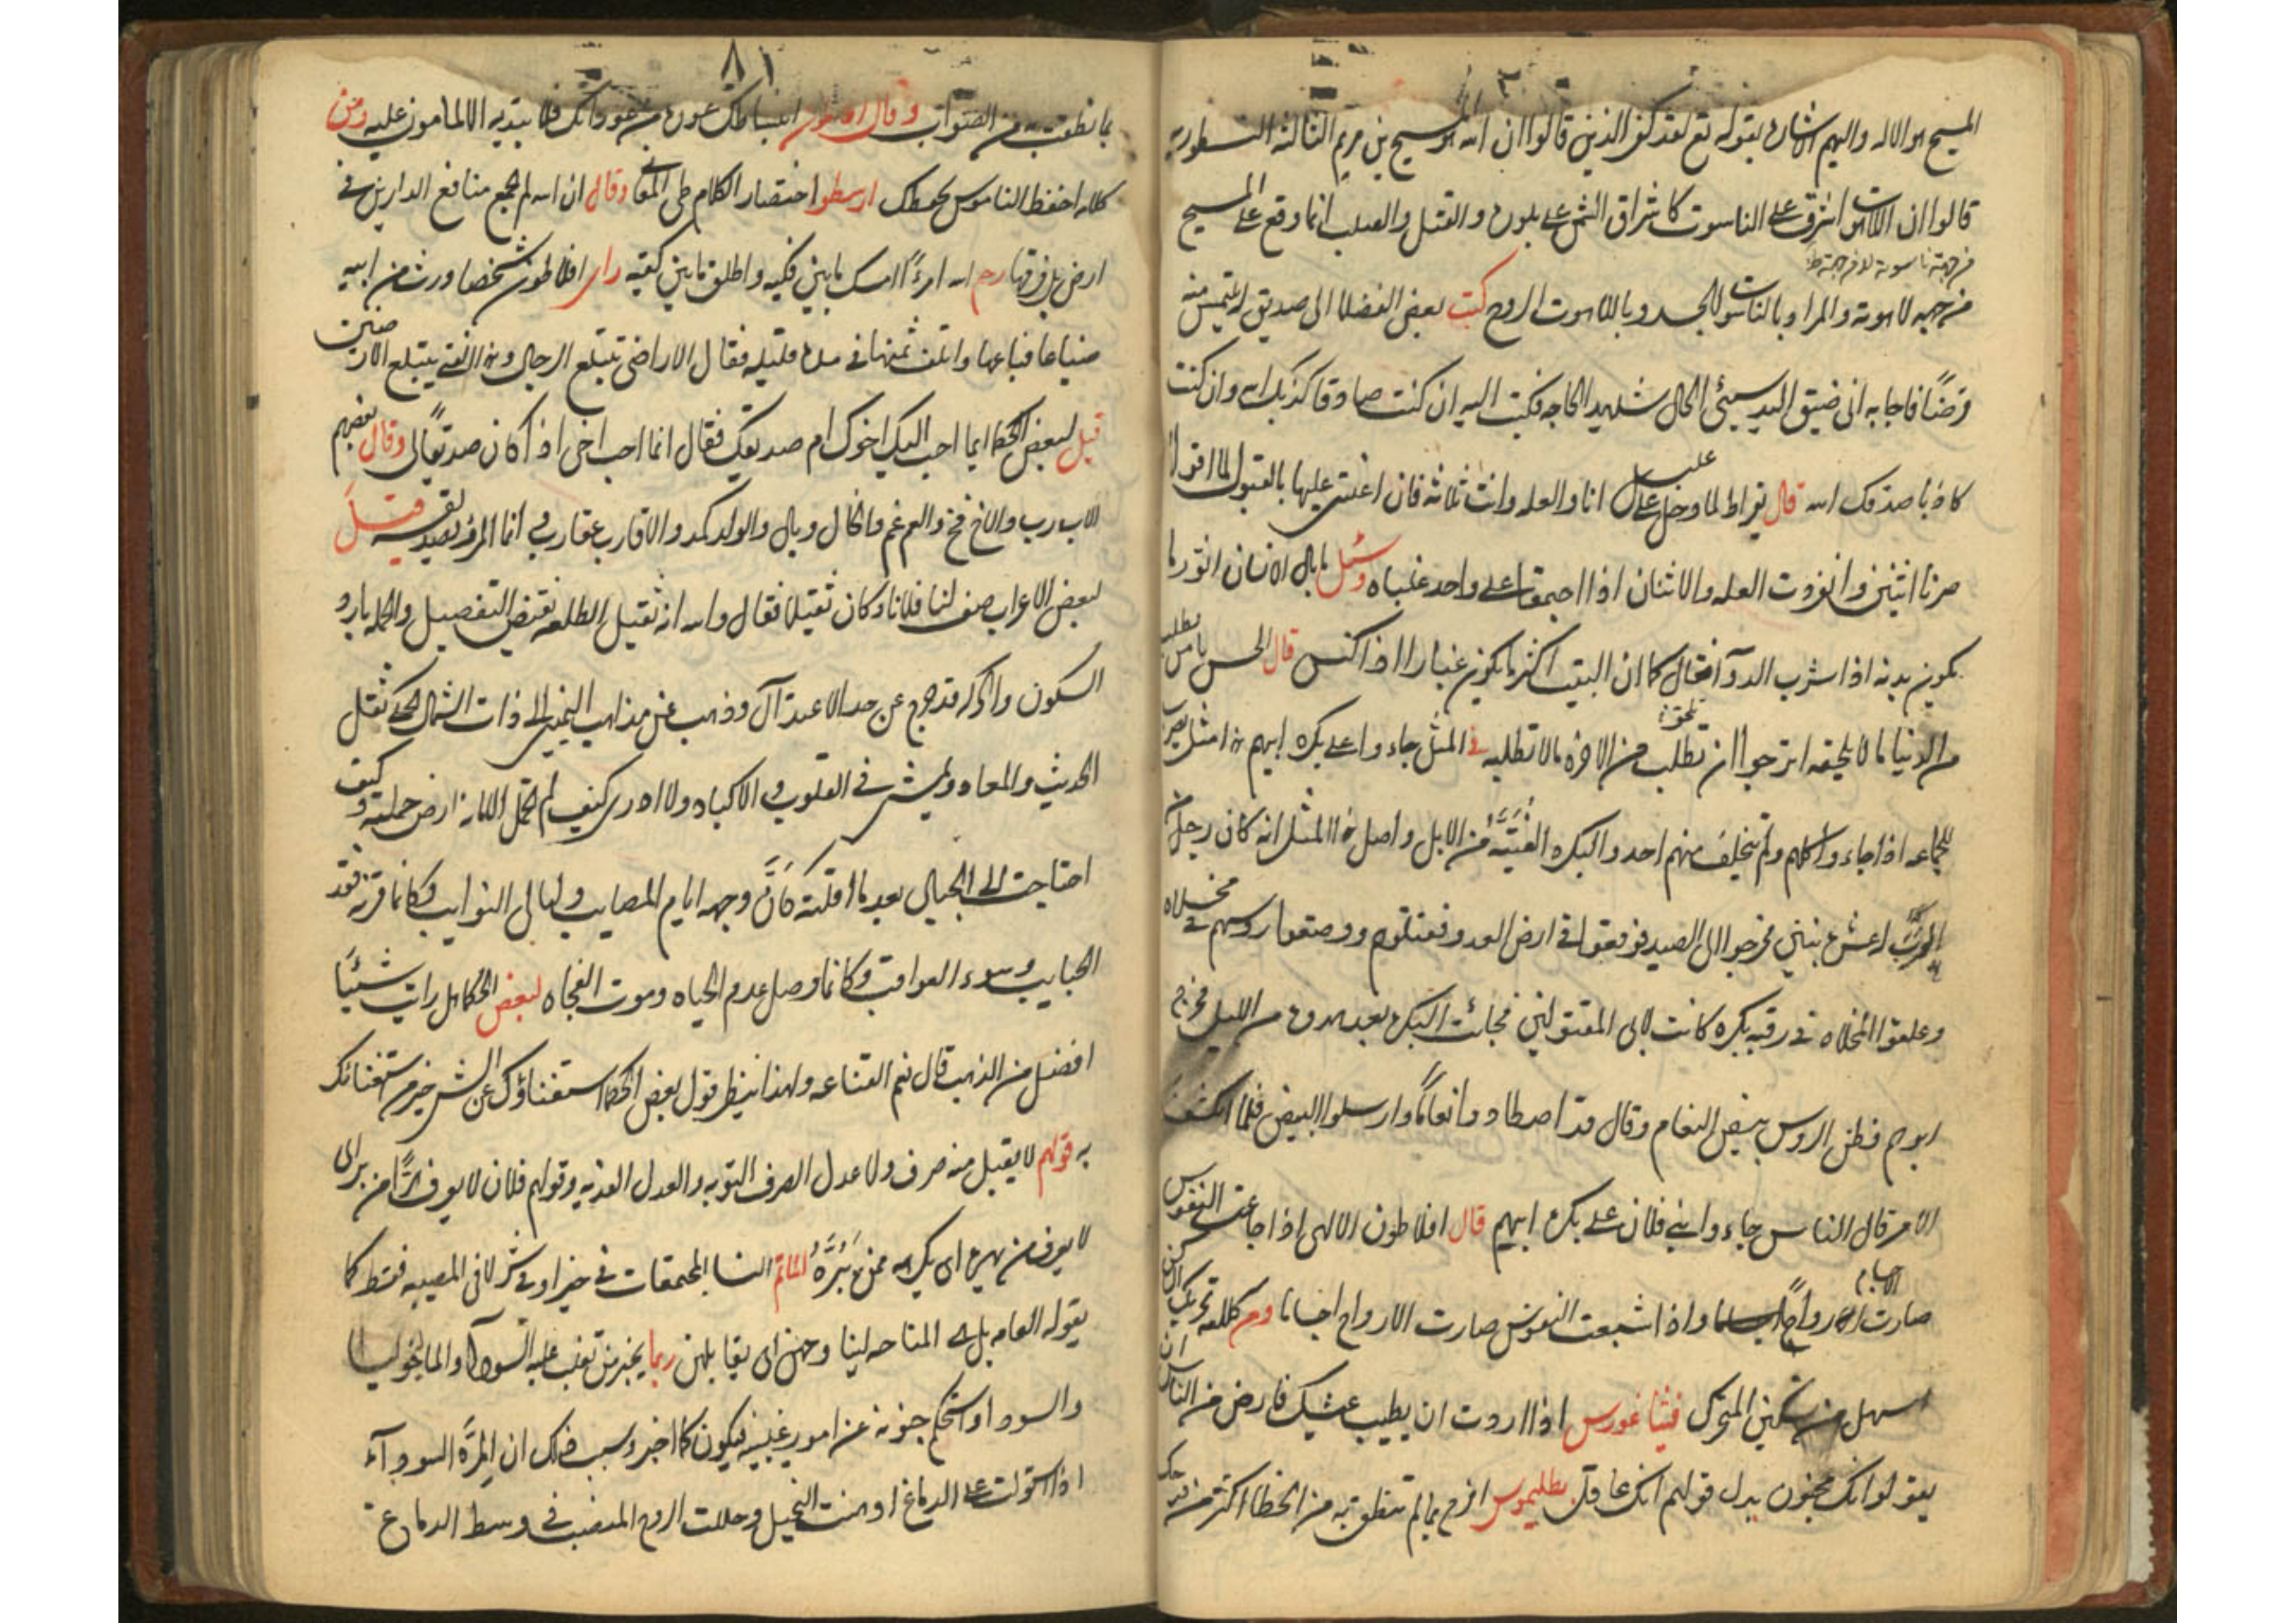 المسيح هو الاله واليهم الاشاره بقوله تع لقد كفر الذين قالوا ان الله هو المسيح بن مريم الثالثه النسطوريه
قالوا ان اللاهوت اشرق على الناسوت كاشراق الشمس على بلوره والقتل والصلب انما وقع على المسيح
من جهة ناسوته لا من جهة
من جهه لاهوته والمراد بالناسوت الجسد وباللاهوت الروح كتب بعض الفضلا الى صديق له يلتمس منه
قرضًا فاجابه انى ضيق اليد سيئ الحال شديد الحاجه فكتب اليه ان كنت صادقا كذبك الله وان كنت
كاذبا صدقك الله قال بقراط لما دخل على عليل انا والعله وانت ثلاثه فان اعنتنى عليها بالقبول لما اقول
صرنا اثنين وانفردت العله والاثنان اذا اجتمعا على واحد غلباه وسئل ما بال الانسان اثور ما
يكون بدنه اذا شرب الدوآ فقال كما ان البيت اكثر ما يكون غبارا اذا كنس قال الحسن يا من يطلب
من الدنيا ما لا يلحقه اترجو ان تلحق من الاخره ما لا تطلبه فى المثل جاءوا على بكرة ابيهم هذا مثل يضرب
للجماعه اذا جاءوا كلهم ولم يتخلف منهم احد والبكره الفتيّه من الابل واصل هذا المثل انه كان رجل من
العرب له عشره بنين فخرجوا الى الصيد فوقعوا فى ارض العدو فقتلوهم ووضعوا روسهم فى مخلاه
وعلقوا المخلاه فى رقبه بكره كانت لابى المقتولين فجائت البكره بعد هدوه من الليل فخرج
ابوهم فظن الروس بيض النعام وقال قد اصطادوا نعامًا وارسلوا البيض فلما انكشف
الامر قال الناس جاءوا بنى فلان على بكرة ابيهم قال افلاطون الالهى اذا جاعت النفوس
صارت الاجسام ارواحًا واذا شبعت النفوس صارت الارواح اجسادا ومن كلامه تحريك الساكن
اسهل من تسكين المتحرك فيثاغورس اذا اردت ان يطيب عيشك فارض من الناس ان
يقولوا انك مجنون بدل قولهم انك عاقل بطليموس افرح بما لم تنطق به من الخطا اكثر من فرحك
٨١
بما نطقت به من الصواب وقال افلاطون انبساطك عوره من عوراتك فلا تبديه الا لمامون عليه ومن
كلامه احفظ الناموس يحفظك ارسطو اختصار الكلام طى المعانى وقال ان الله لم يجمع منافع الدارين فى
ارض بل فرقها رحم الله امرءً امسك ما بين فكيه واطلق ما بين كفيه راى افلاطون شخصا ورث من ابيه
ضياعا فباعها واتلف ثمنها فى مده قليله فقال الاراضى تبتلع الرجال وهذا الفتى يبتلع الارضين
قيل لبعض الحكما ايما احب اليك اخوك ام صديقك فقال انما احب اخى اذا كان صديقًا لى وقال بعضهم
الاب رب والاخ فخ والعم غم والخال وبال والولد كمد والاقارب عقارب وانما المرء بصديقه قيل
لبعض الاعراب صف لنا فلانا وكان ثقيلا فقال والله انه ثقيل الطلعه بغيض التفصيل والجمله بارد
السكون والحركه قد خرج عن حد الاعتدال وذهب عن مذاهب اليمين الى ذات الشمال يحكى ثقل
الحديث والمعاد ويمشى فى القلوب والاكباد ولا ادرى كيف لم تحمل الامانه ارض حملته وكيف
احتاجت الى الجبال بعد ما اقلته كانّ وجهه ايام المصايب وليالى النوايب وكانما قربه فقد
الحبايب وسوء العواقب وكانما وصله عدم الحياه وموت الفجاه لبعض الحكما هل رايت شيئًا
افضل من الذهب قال نعم القناعه ولهذا ينظر قول بعض الحكما استغناؤك عن الشى خير من استغنائك
به قولهم لا يقبل منه صرف ولا عدل الصرف التوبه والعدل الفديه وقولهم فلان لا يعرف هرًّا من بر اى
لا يعرف من يهره اى يكرهه ممن يَبَرُّهُ الماتم النسا المجتمعات فى خير او فى شر لا فى المصيبه فقط كما
يقوله العامه بل هى المناحه لينا وحهن اى يقابلهن ربما يخبر من تغلب عليه السودآ والماليخوليا
والسودا واستحكم جنونه عن امور غيبيه فيكون كما اخبر وسبب ذلك ان المرّة السودآء
اذا استولت على الدماغ اوهنت التخيل وحللت الروح المنصب فى وسط الدماغ